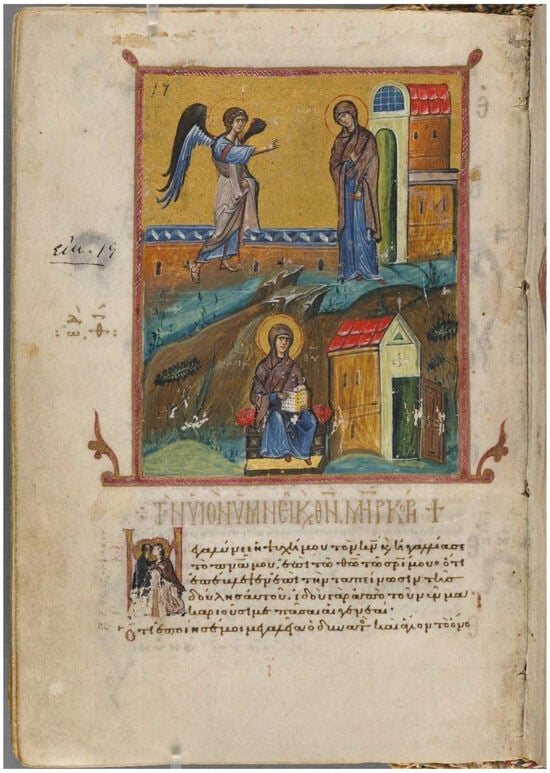 17
εἰκ. 19
ΤῸΝ ΥΙΟΝ ΥΜΝΕΙ Κ ΘΝ ΜΗΡ ΚΟΡΗ +
Μεγαλύνει ἡ ψυχή μου τὸν κν κ ἠγαλλίασε
το πνα μου· ἐπὶ τῶ θω τῶ σρι μου· ὅτι
ἐπέβλεψεν ἐπὶ τὴν ταπείνωσιν τῆς
δούλης αὐτοῦ· ἰδοὺ γὰρ ἀπὸ τοῦ νῦν μα
καριοῦσί με πᾶσαι αἱ γενεαί·
Ὅτι ἐποίησέ μοι μεγαλεῖα ὁ δυνατ καὶ ἅγιον τὸ ὄνο